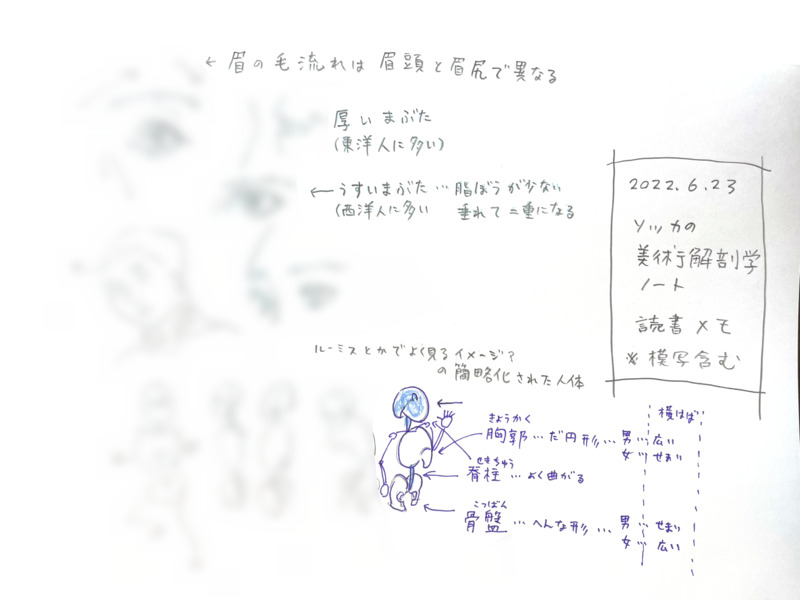 ← 眉の毛流れは 眉頭と眉尻で異なる
厚いまぶた
(東洋人に多い)
←うすいまぶた…脂ぼうが少ない
(西洋人に多い 垂れて二重になる
2022.6.23
ソッカの
美術解剖学
ノート
読書メモ
※模写含む
ルーミスとかでよく見るイメージ?
の簡略化された人体
横はば
きょうかく
胸郭…だ円形…男…広い
女…せまい
せきちゅう
脊柱…よく曲がる
こつばん
骨盤…へんな形…男…せまい
女…広い